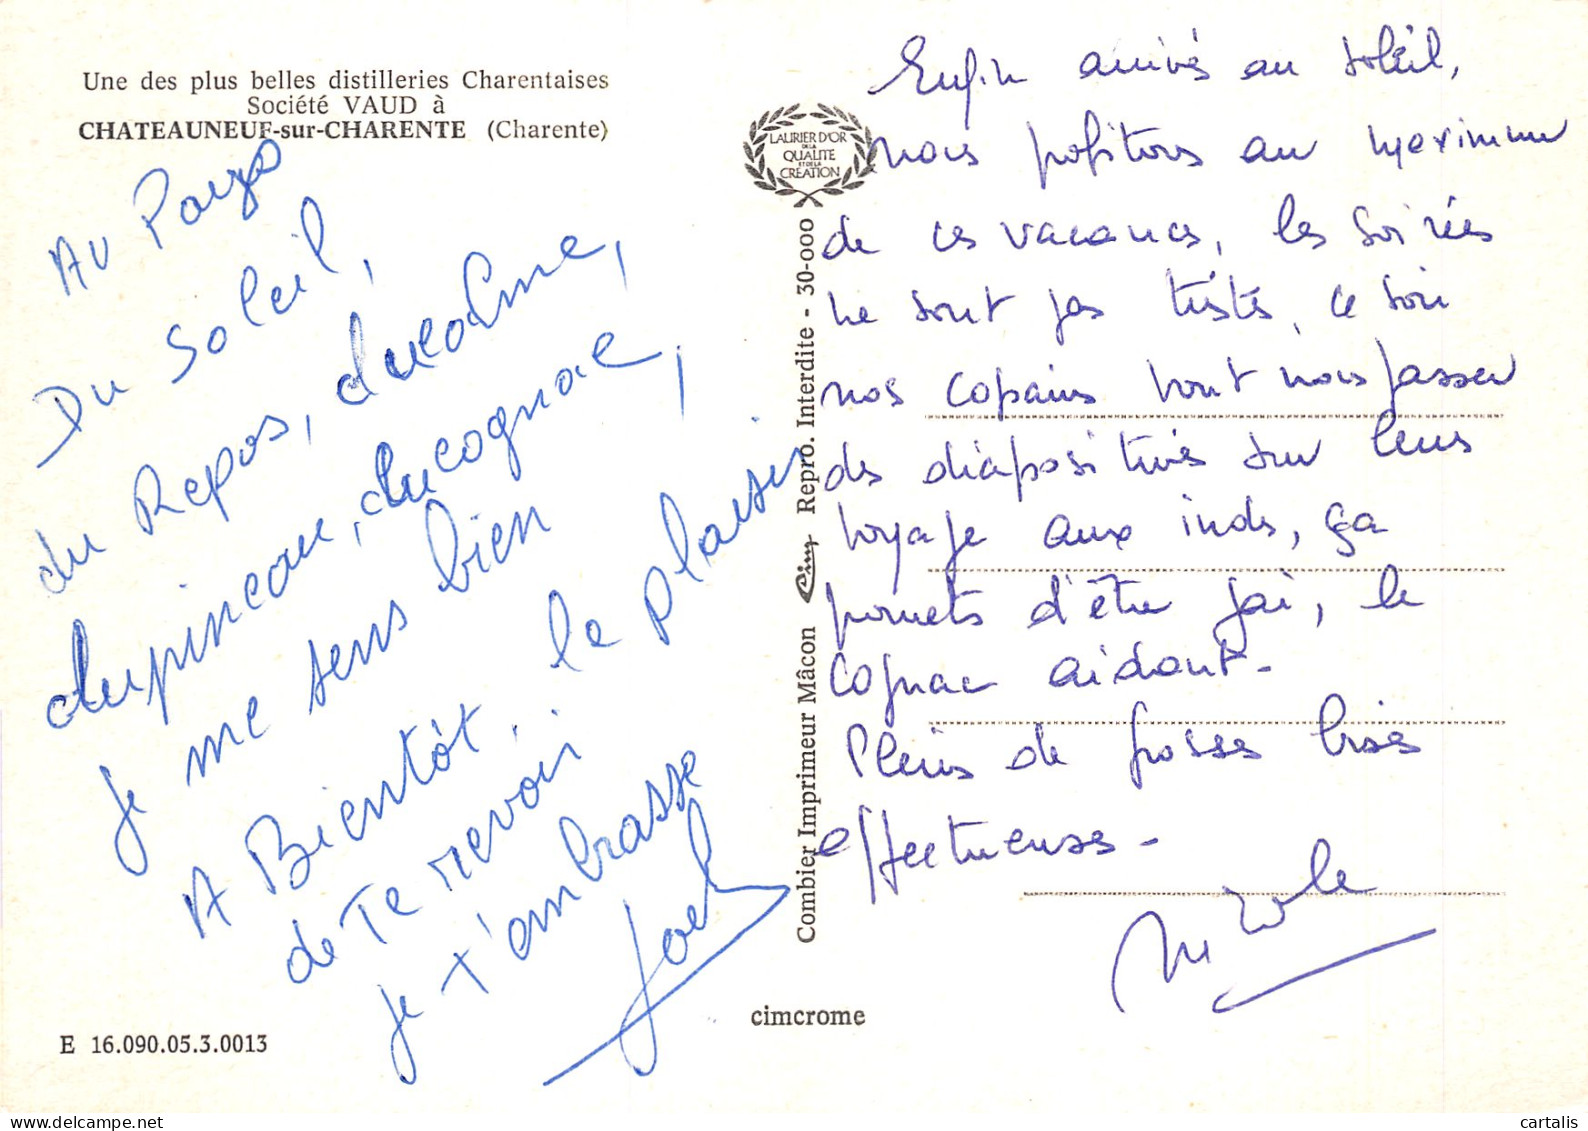 Une des plus belles distilleries Charentaises
Société VAUD à
CHATEAUNEUF-sur-CHARENTE (Charente)
Au Pays
Du Soleil,
du Repos, du calme,
du pineau, du cognac,
je me sens bien
A Bientôt, le plaisir
de Te revoir
je t'embrasse
Joël
E 16.090.05.3.0013
LAURIER D'OR
DE LA
QUALITE
ET DE LA
CREATION
Combier Imprimeur Mâcon Cim Repro. Interdite - 30-000
cimcrome
Enfin arrivés au soleil,
nous profitons au maximum
de ces vacances, les soirées
ne sont pas tristes, ce soir
nos copains vont nous passer
des diapositives sur leurs
voyage aux inds, ça
promets d'être gai, le
cognac aidant -
Pleins de grosses bises
affectueuses -
Nicole
cartalis
www.delcampe.net